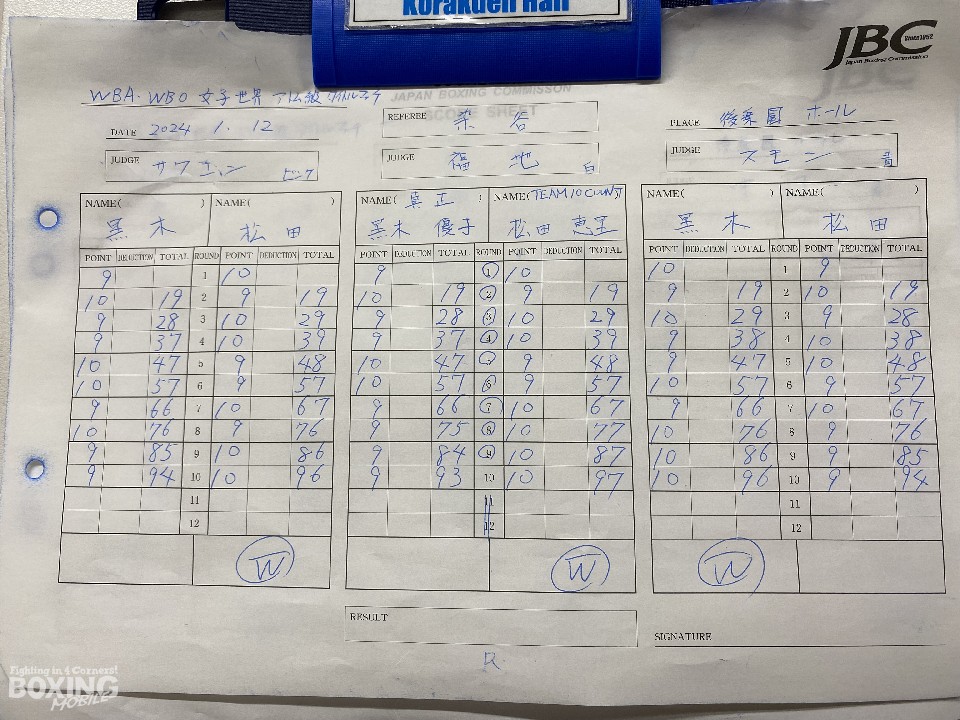 Korakuen Hall
JBC
Since 1952
Japan Boxing Commission
WBA・WBO 女子世界アトム級タイトルマッチ
JAPAN BOXING COMMISSON
SCORE SHEET
DATE 2024 1. 12
REFEREE 染谷
PLACE 後楽園ホール
JUDGE サワエンン ピンク
JUDGE 福地 白
JUDGE スモン 青
NAME( ) NAME( ) NAME( 真正 ) NAME(TEAM 10 COUNT) NAME( ) NAME( )
黒木 松田 黒木 優子 松田 恵里 黒木 松田
POINT DEDUCTION TOTAL ROUND POINT DEDUCTION TOTAL POINT DEDUCTION TOTAL ROUND POINT DEDUCTION TOTAL POINT DEDUCTION TOTAL ROUND POINT DEDUCTION TOTAL
9 1 10 9 1 10 10 1 9
10 19 2 9 19 10 19 2 9 19 9 19 2 10 19
9 28 3 10 29 9 28 3 10 29 10 29 3 9 28
9 37 4 10 39 9 37 4 10 39 9 38 4 10 38
10 47 5 9 48 10 47 5 9 48 9 47 5 10 48
10 57 6 9 57 10 57 6 9 57 10 57 6 9 57
9 66 7 10 67 9 66 7 10 67 9 66 7 10 67
10 76 8 9 76 9 75 8 10 77 10 76 8 9 76
9 85 9 10 86 9 84 9 10 87 10 86 9 9 85
9 94 10 10 96 9 93 10 10 97 10 96 10 9 94
11 11 11
12 12 12
W W W
RESULT
SIGNATURE
R
Fighting in 4 Corners!
BOXING
MOBILE